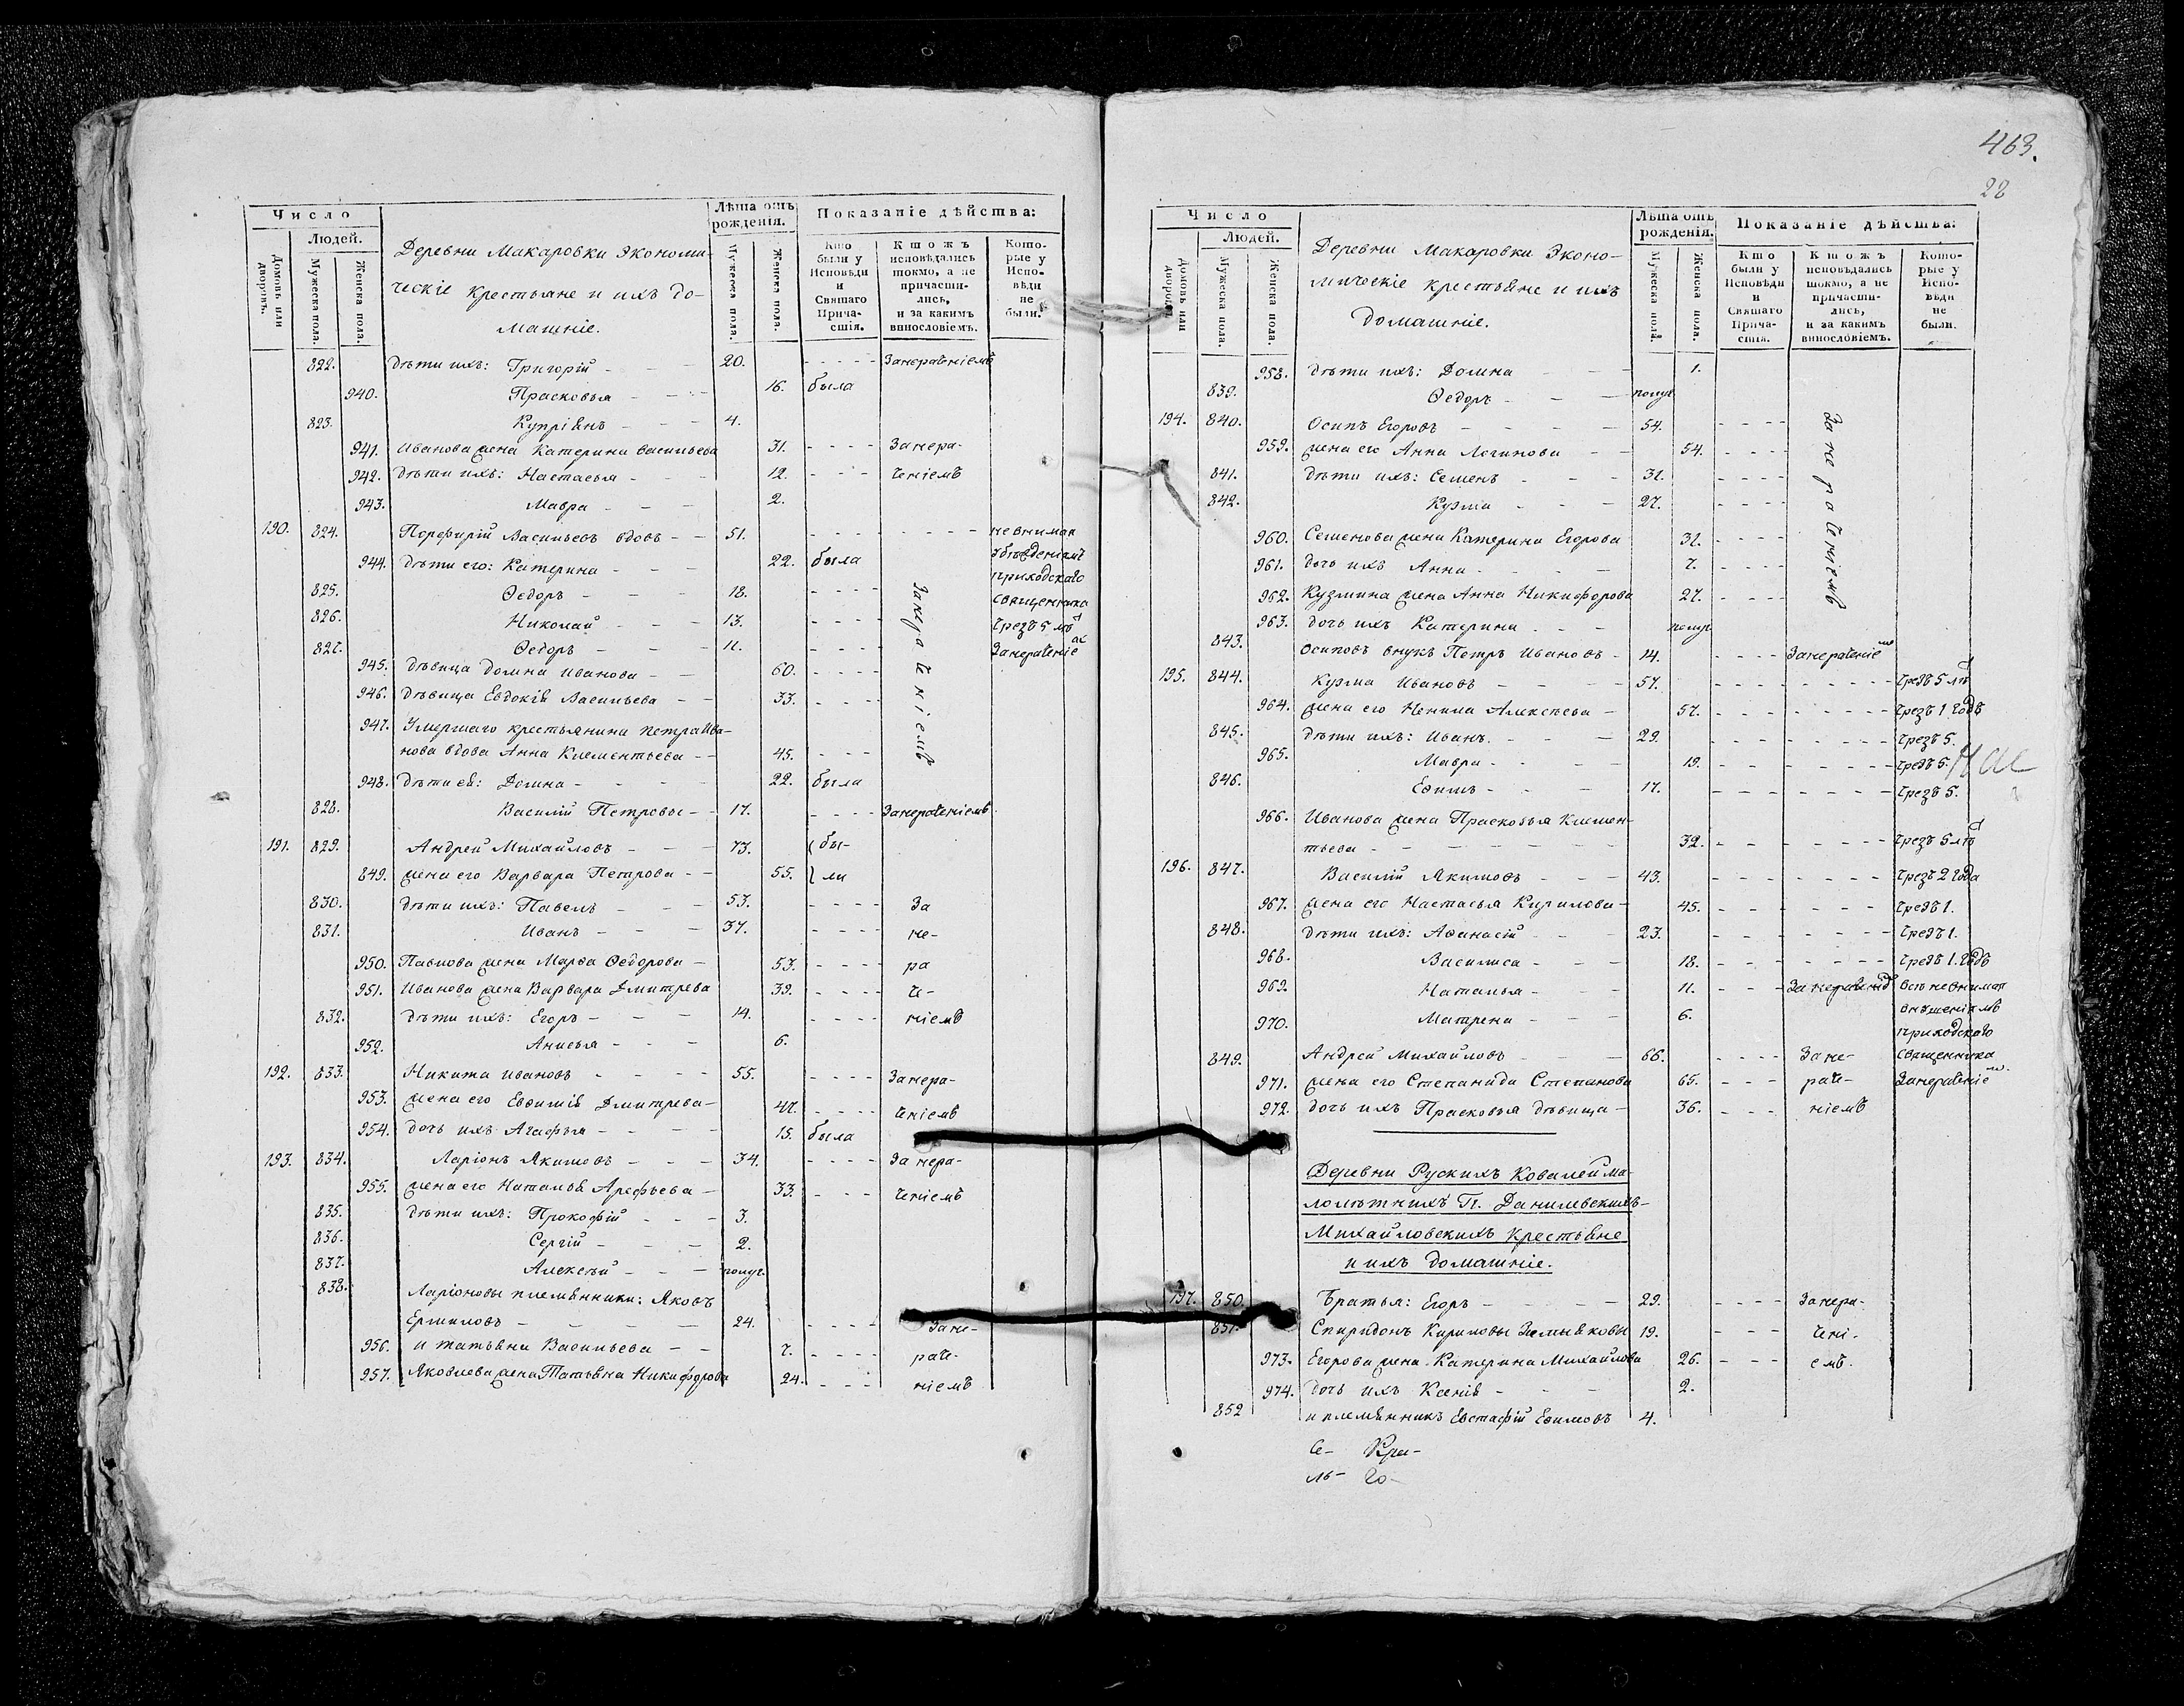 Число
Людей.
Домовъ или дворовъ.
Мужеска пола.
Женска пола.
Деревни Макаровки Экономи-
ческіе крестьяне и ихъ до-
машніе.
Лѣта отъ рожденія.
Мужеска пола.
Женска пола.
Показаніе дѣйства:
Кто были у Исповѣди и Святаго Прича-стія.
Ктожъ исповѣдались токмо, а не причасти-лись, и за какимъ винословіемъ.
Кото-рые у Испо-вѣди не были.
822. дѣти ихъ: Григорій - - - 20. - - - - Занераченіемъ
940. Прасковья - - - 16. была
823. Купріянъ - - - 4.
941. Иванова жена Катерина Васильева 31. - - - - Занера-
942. дѣти ихъ: Настасья - - - 12. - - - ченіемъ
943. Мавра - - - 2.
190. 824. Порфирій Васильевъ вдовъ - - 51. - - - - - - - - не внимая
944. дѣти его: Катерина - - - 22. была убѣжденіямъ
приходскаго
825. Ѳедоръ - - - 18. - - - - священника
826. Николай - - - 13. - - - - чрезъ 5 лѣт
827. Ѳедоръ - - - 11. - - - - Занераченіе
Занераченіемъ
945. дѣвица Домна Иванова - - 60. - - - -
946. дѣвица Евдокія Васильева - - 33. - - - -
947. Умершаго крестьянина Петра Ива-
нова вдова Анна Клементьева - - 45. - - -
948. дѣти ея: Домна - - - - 22. была
828. Василій Петровы - - 17. - - - - Занераченіемъ
191. 829. Андрей Михайловъ - - - 73. бы-
849. жена его Варвара Петрова - - 55. ли
830. дѣти ихъ: Павелъ - - - 53. - - - - За
831. Иванъ - - - 37. - - - - не-
950. Павлова жена Марѳа Ѳедорова - 53. - - - - ра
951. Иванова жена Варвара Дмитрева 39. - - - - че-
832. дѣти ихъ: Егоръ - - - 14. - - - - ніемъ
952. Анисья - - - 6.
192. 833. Никита Ивановъ - - - - 55. - - - - Занера-
953. жена его Евфимія Дмитрева - 47. - - - - ченіемъ
954. дочь ихъ Агафья - - - - 15. была
193. 834. Ларіонъ Якимовъ - - - 34. - - - - Занера-
955. жена его Наталья Арефьева - 33. - - - ченіемъ
835. дѣти ихъ: Прокофій - - - 3.
836. Сергій - - - 2.
837. Алексѣй - - - полуг.
838. Ларіоновы племянники: Яковъ
Ермиловъ - - - - - 24. - - - - Зане-
956. и Татьяна Васильева - - 7. - - - - раче-
957. Яковлева жена Татьяна Никифорова 24. - - - ніемъ
463.
28
Число
Людей.
Домовъ или дворовъ.
Мужеска пола.
Женска пола.
Деревни Макаровки Эконо-
мическіе крестьяне и ихъ
домашніе.
Лѣта отъ рожденія.
Мужеска пола.
Женска пола.
Показаніе дѣйства:
Кто были у Исповѣди и Святаго Прича-стія.
Ктожъ исповѣдались токмо, а не причасти-лись, и за какимъ винословіемъ.
Кото-рые у Испо-вѣди не были.
958. дѣти ихъ: Домна - - - 1.
839. Ѳедоръ - - - полуг.
194. 840. Осипъ Егоровъ - - - - 54. - - - -
959. жена его Анна Логинова - - 54. - - - -
841. дѣти ихъ: Семенъ - - - 31. - - - -
842. Кузма - - - 27. - - - -
Занераченіемъ
960. Семенова жена Катерина Егорова 31. - - - -
961. дочь ихъ Анна - - - - 7. - - - -
962. Кузмина жена Анна Никифорова 27. - - - -
963. дочь ихъ Катерина - - - полуг.
843. Осиповъ внукъ Петръ Ивановъ - 14. - - - - Занераченіемъ
195. 844. Кузма Ивановъ - - - - 57. - - - - - - - - чрезъ 5 лѣт
964. жена его Ненила Алексѣева - 57. - - - - - - - - чрезъ 1 годъ
845. дѣти ихъ: Иванъ - - - 29. - - - - - - - - чрезъ 5.
965. Мавра - - - - 19. - - - - - - - чрезъ 5.
846. Ефимъ - - - 17. - - - - - - - чрезъ 5.
966. Иванова жена Прасковья Климен-
тьева - - - - - - - 32. - - - - - - - чрезъ 5 лѣт
196. 847. Василій Якимовъ - - - 43. - - - - - - - - чрезъ 2 года
967. жена его Настасья Кирилова - 45. - - - - - - чрезъ 1.
848. дѣти ихъ: Аѳанасій - - - 23. - - - - - - чрезъ 1.
968. Василиса - - - 18. - - - - - - - чрезъ 1. годъ
969. Наталья - - - 11. - - - Занераченіе всѣ не внимая
970. Матрена - - - 6. внушеніямъ
приходскаго
849. Андрей Михайловъ - - - 66. - - - - Зане- священника
971. жена его Степанида Степанова 65. - - - раче- Занераченіе
972. дочь ихъ Прасковья дѣвица - 36. - - - ніемъ
Деревни Рускихъ Ковалей ма-
лолѣтнихъ Гг. Данилевскихъ-
Михайловскихъ крестьяне
и ихъ домашніе.
197. 850. Братья: Егоръ - - - - 29. - - - - Занера-
851. Спиридонъ Кириловы Земляковы 19. - - - чені-
973. Егорова жена Катерина Михайлова 26. - - - емъ.
974. дочь ихъ Ксенія - - - 2.
852 и племянникъ Евстафій Ефимовъ 4.